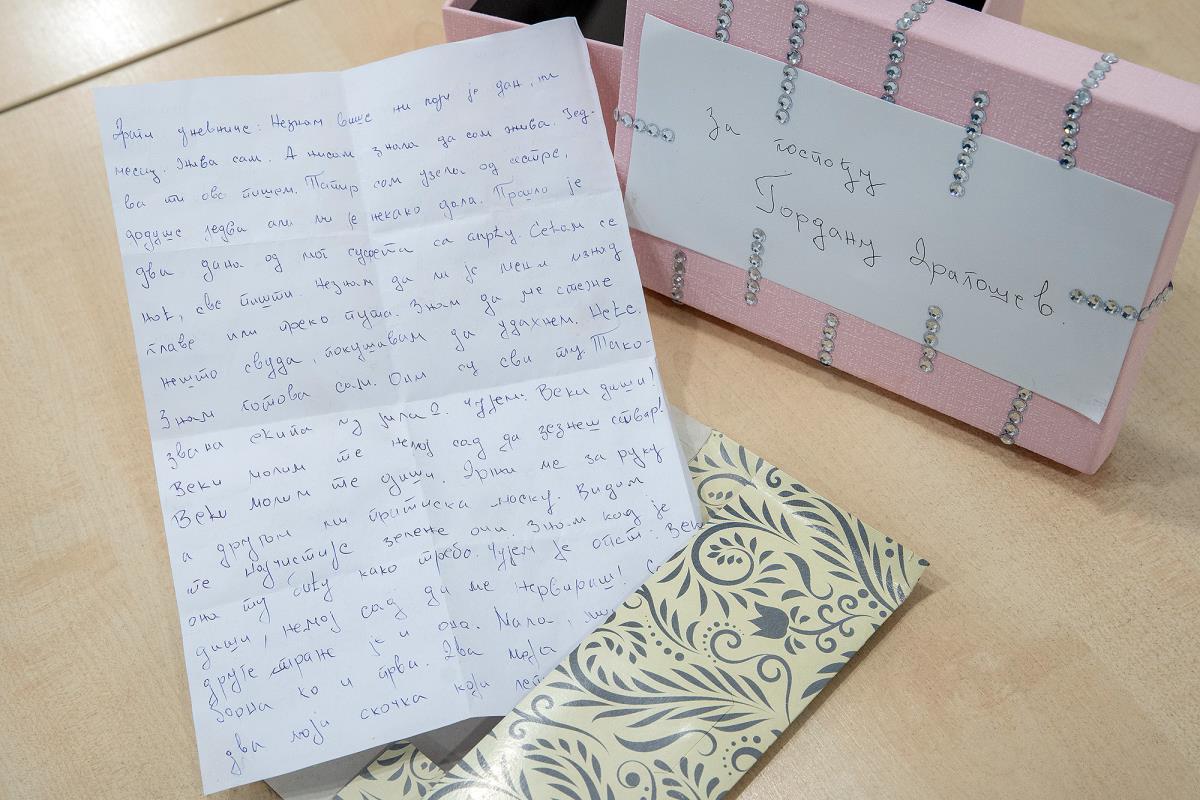 Драги дневниче: Незнам више ни који је дан, ни
месец. Жива сам. А нисам знала да сам жива. Јед-
ва ти ово пишем. Папир сам узела од сестре,
додуше једва али ми је некако дала. Прошло је
два дана од мог сусрета са смрћу. Сећам се
ноћ, све пишти. Незнам да ли је мени изнад
главе или преко пута. Знам да ме стеже
нешто свуда, покушавам да удахнем. Неће.
Знам готова сам. Они су сви ту. Тако-
звана екипа из јила 2. Чујем: Веки диши!
Веки молим те немој сад да зезнеш ствар!
Веки молим те диши. Држи ме за руку
а другом ми притиска маску. Видим
те најчистије зелене очи. Знам кад је
она ту бићу како треба. Чујем је опет: Веки
диши, немој сад да ме нервираш! Са
друге стране је и она. Мала,
борна ко и прва. Два моја
два моја скочка који
За госпођу
Гордану Драгошев.